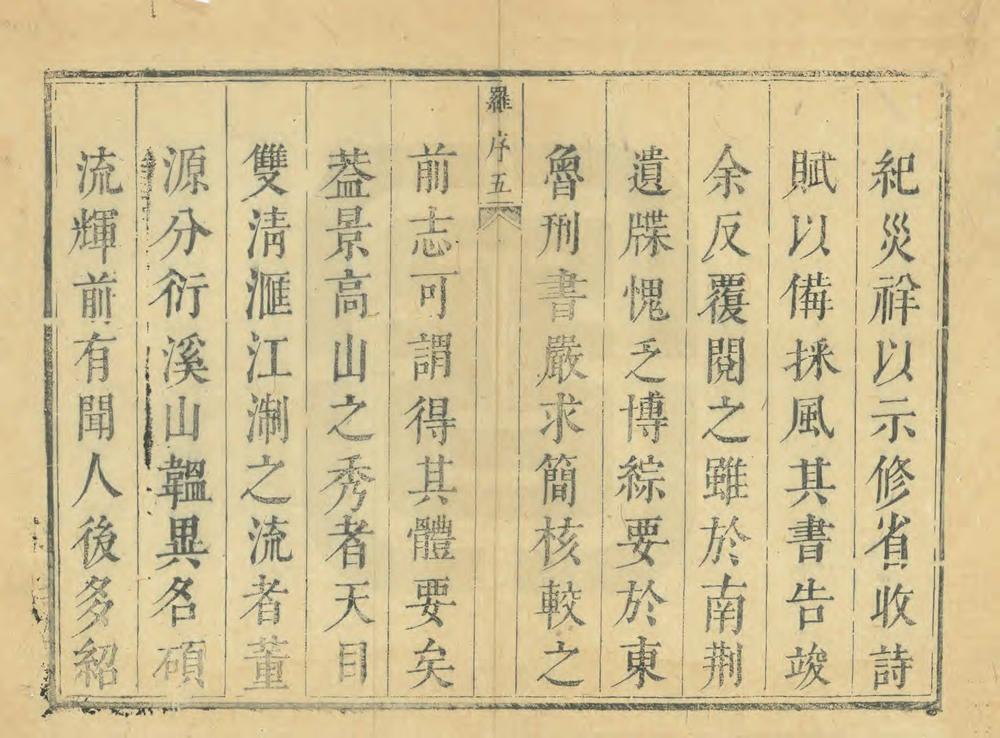 紀災祥以示修省收詩
賦以備採風其書告竣
余反覆閱之雖於南荆
遺牒愧乏博綜要於東
魯刑書嚴求簡核較之
羅序五
前志可謂得其體要矣
葢景高山之秀者天目
雙清滙江淛之流者董
源分衍溪山韞異名碩
流輝前有聞人後多紹